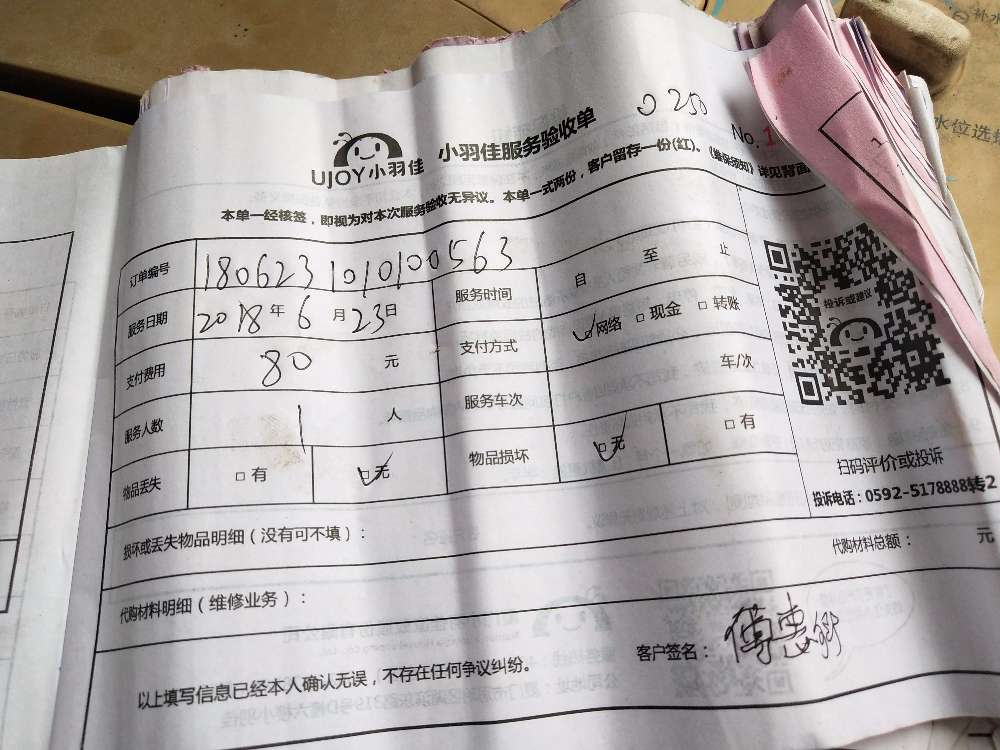 0250
No.1
UJOY小羽佳 小羽佳服务验收单
本单一经核签,即视为对本次服务验收无异议。本单一式两份,客户留存一份(红)。《维保须知》详见背面
订单编号 180623101010563
服务日期 2018年6月23日 服务时间 自 至 止
支付费用 80 元 支付方式 ☑网络 □现金 □转账
服务人数 1 人 服务车次 车/次
物品丢失 □有 ☑无 物品损坏 ☑无 □有
投诉或建议
扫码评价或投诉
投诉电话:0592-5178888转2
损坏或丢失物品明细(没有可不填):
代购材料明细(维修业务): 代购材料总额: 元
以上填写信息已经本人确认无误,不存在任何争议纠纷。 客户签名:傅惠卿
水位选
补水